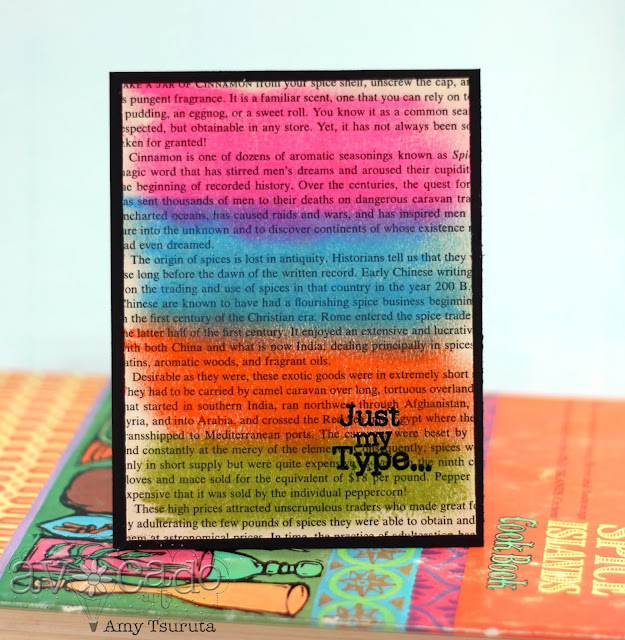 AKE A JAR OF CINNAMON from your spice shelf, unscrew the cap, an
s pungent fragrance. It is a familiar scent, one that you can rely on to
pudding, an eggnog, or a sweet roll. You know it as a common sea
espected, but obtainable in any store. Yet, it has not always been so
ken for granted!
Cinnamon is one of dozens of aromatic seasonings known as Spic
nagic word that has stirred men's dreams and aroused their cupidit
he beginning of recorded history. Over the centuries, the quest for
as sent thousands of men to their deaths on dangerous caravan tra
ncharted oceans, has caused raids and wars, and has inspired men
are into the unknown and to discover continents of whose existence n
ad even dreamed.
The origin of spices is lost in antiquity. Historians tell us that they w
se long before the dawn of the written record. Early Chinese writing
on the trading and use of spices in that country in the year 200 B.
Chinese are known to have had a flourishing spice business beginnin
n the first century of the Christian era. Rome entered the spice trade
he latter half of the first century. It enjoyed an extensive and lucrativ
with both China and what is now India, dealing principally in spices
atins, aromatic woods, and fragrant oils.
Desirable as they were, these exotic goods were in extremely short
They had to be carried by camel caravan over long, tortuous overland
hat started in southern India, ran northwest through Afghanistan,
yria, and into Arabia, and crossed the Red Egypt where the
ransshipped to Mediterranean ports. The were beset by
nd constantly at the mercy of the eleme spices w
nly in short supply but were quite expen ninth c
loves and mace sold for the equivalent of $18 per pound. Pepper
expensive that it was sold by the individual peppercorn!
These high prices attracted unscrupulous traders who made great fo
y adulterating the few pounds of spices they were able to obtain and
hem at astronomical prices. In time, the practice of adulteration
Just
my
Type...
SPICE
ISLANDS
Cook Book
avocado
arts
Amy Tsuruta